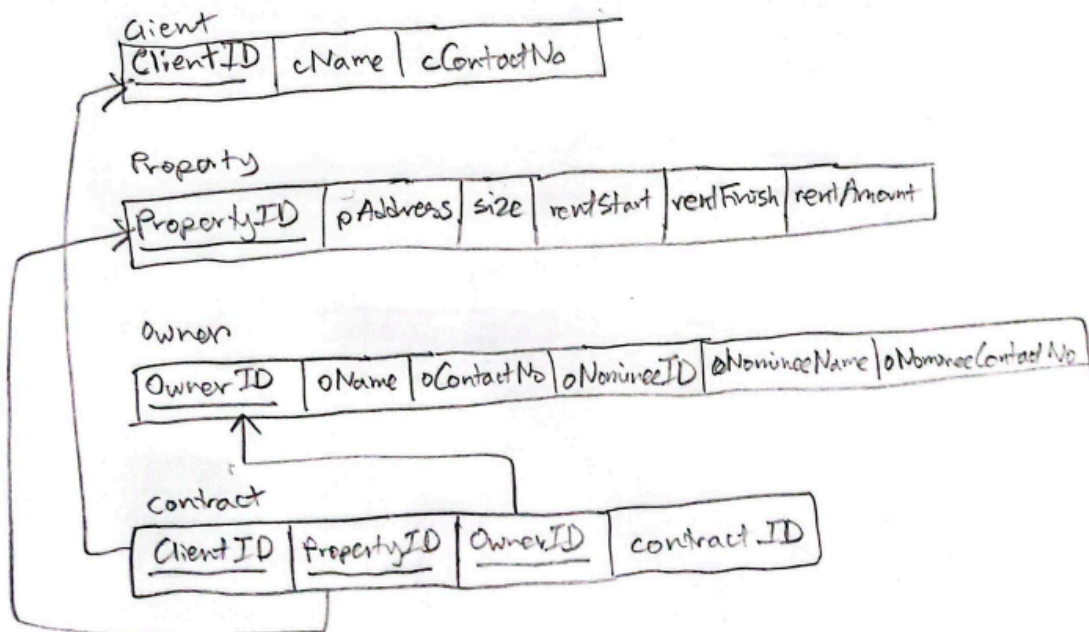 Client
ClientID cName cContactNo
Property
PropertyID pAddress size rentStart rentFinish rentAmount
Owner
OwnerID oName oContactNo oNomineeID oNomineeName oNomineeContactNo
Contract
ClientID PropertyID OwnerID contractID